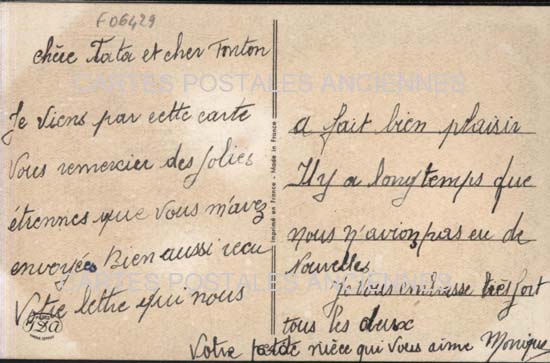 F06429
chère Tata et cher Tonton
CARTES POSTALES ANCIENNES
Je viens par cette carte
vous remercier des jolies
étrennes que vous m'avez
envoyées Bien aussi recu
Votre lettre qui nous
a fait bien plaisir
Il y a longtemps que
nous n'avionz pas eu de
Nouvelles
Je vous embrasse très fort
tous les deux
Votre petite nièce qui vous aime Monique
CARTES POSTALES ANCIENNES
Imprimé en France - Made in France